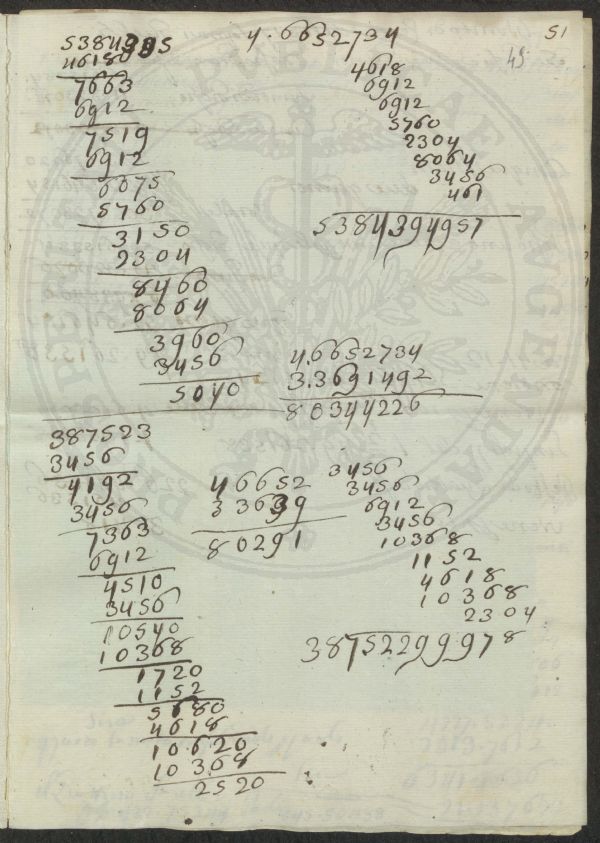 51
49
5384395
46180
7663
6912
7519
6912
6075
5760
3150
2304
8460
8064
3960
3456
5040
4.6652734
4618
6912
6912
5760
2304
8064
3456
461
5384394957
4.6652734
3.3691492
80344226
387523
3456
4192
3456
7363
6912
4510
3456
10540
10368
1720
1152
5680
4618
10620
10368
2520
46652
33639
80291
3456
3456
6912
3456
10368
1152
4618
10368
2304
38752299978